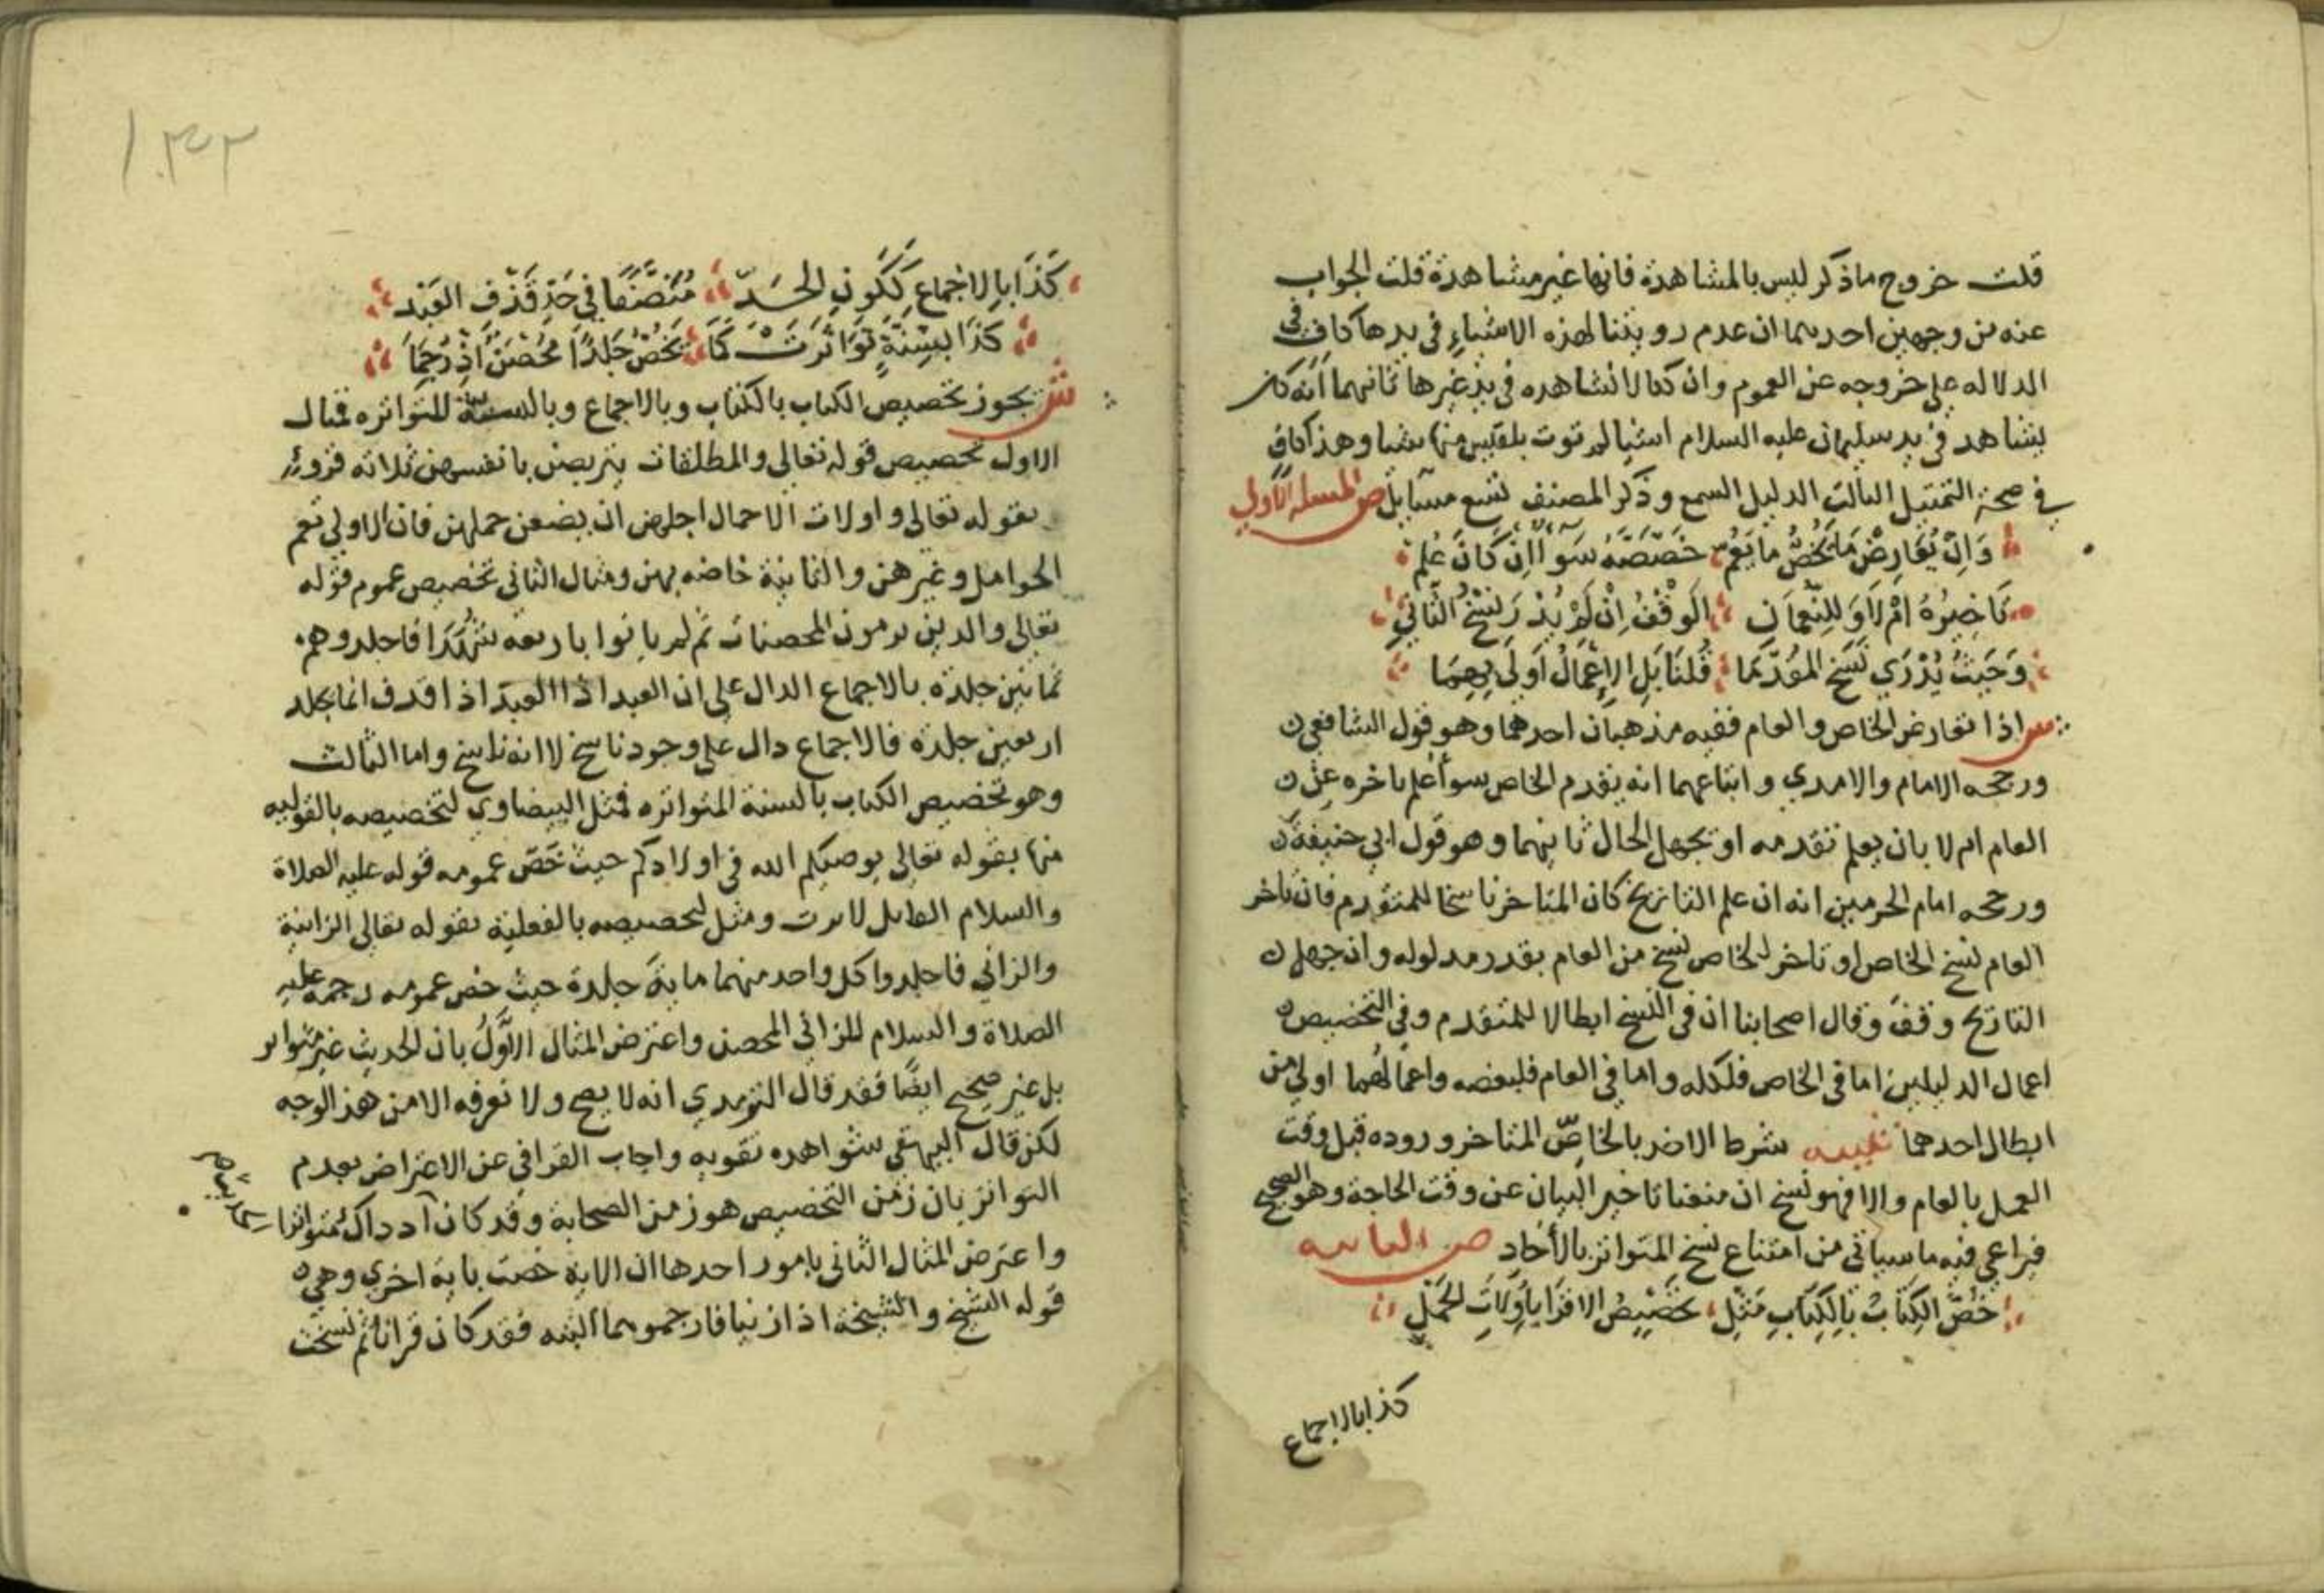 قلت خروج ماذكر ليس بالمشاهدة فانها غير مشاهدة قلت الجواب
عنه من وجهين احدهما ان عدم رويتنا لهذه الاشياء في يدها كاف في
الدلاله علي خروجه عن العموم وان كنا لانشاهده في يد غيرها ثانيهما انه كان
يشاهد في يد سليمان عليه السلام اشيا لم توت بلقيس منها شيا وهذا كاف
في صحة التمثيل الثالث الدليل السمع وذكر المصنف تسع مسايل ص المسله الاولي
وَاِنْ يُعَارِضْ مَا يَخُصُّ مَا يَعُمّ خَصَّصَهُ سَوَآ اِنْ كَانَ عُلِمْ
تَاخِيرُهُ اَمْ لَا وَلِلنُّعْمَانِ الْوَقْفُ اِنْ لَمْ يُدْرَ نَسْخُ الثَّانِي
وَحَيْثُ يُدْرَي نَسَخَ المُقَدَّمَا قُلنَا بَلِ الاِعْمَالُ اَوْلَي بِهِمَا
ش اذا تعارض الخاص والعام ففيه مذهبان احدهما وهو قول الشافعي
ورجحه الامام والامدي واتباعهما انه يقدم الخاص سوآ علم تاخره عن
العام ام لا بان يعلم تقدمه او تجهل الحال ثانيهما وهو قول ابي حنيفة
ورجحه امام الحرمين انه ان علم التاريخ كان المتاخر ناسخا للمتقدم فان تاخر
العام نسخ الخاص او تاخر الخاص نسخ من العام بقدر مدلوله وان جهل
التاريخ وقف وقال اصحابنا ان في النسخ ابطالا للمتقدم وفي التخصيص
اعمال الدليلين اما في الخاص فلكله واما في العام فلبعضه واعمالهما اولي من
ابطال احدهما تنبيه شرط الاخذ بالخاصّ المتاخر وروده قبل وقت
العمل بالعام والا فهو نسخ ان منعنا تاخير البيان عن وقت الحاجة وهو الصحيح
فيراعي فيه ماسياتي من امتناع نسخ المتواتر بالأحاد ص الثانيه
خُصَّ الكِتَابُ بِالكِتَابِ مَثِّلِ تخْصِيْصُ الاقرَا بِأُوْلَاتِ الحَمْلِ
كذا بالاجماع
١٠٣٢
كَذَا بِالاجْمَاعِ كَكَوْنِ الحَدّ مُنَصَّفًا فِي حَدِّ قَذْفِ العَبْدِ
كَذَا بِسُنَّةٍ تَوَاتَرَتْ كَمَا يَخُصُّ جَلدًا مُحْصَنٌ اِذْ رُجِمَا
ش يجوز تخصيص الكتاب بالكتاب وبالاجماع وبالسنة المتواتره فمثال
الاول تخصيص قوله تعالي والمطلقات يتربصن بانفسهن ثلاثه قروء
بقوله تعالي واولات الاحمال اجلهن ان يضعن حملهن فان الاولي تعم
الحوامل وغيرهن والثانية خاصه بهن ومثال الثاني تخصيص عموم قوله
تعالي والذين يرمون المحصنات ثم لم ياتوا باربعه شهدآ فاجلدوهم
ثمانين جلدة بالاجماع الدال علي ان العبد اذا العبد اذا قذف انما يجلد
اربعين جلدة فالاجماع دال علي وجود ناسخ لا انه ناسخ واما الثالث
وهو تخصيص الكتاب بالسنة المتواتره فمثل البيضاوي لتخصيصه بالقوليه
منها بقوله تعالي يوصيكم الله في اولادكم حيث خَصّ عمومه قوله عليه الصلاة
والسلام القاتل لايرث ومثل لتخصيصه بالفعلية بقوله تعالي الزانية
والزاني فاجلدوا كل واحد منهما ماية جلدة حيث خص عمومه رجمه عليه
الصلاة والسلام للزاني المحصن واعترض المثال الاَوّلُ بان الحديث غير متواتر
بل غير صحيح ايضًا فقد قال الترمدي انه لا يصح ولا نعرفه الا من هذ الوجه
لكن قال البيهقي شواهده تقويه واجاب القرافي عن الاعتراض بعدم
التواتر بان زمن التخصيص هو زمن الصحابة وقد كان آذ داك متواترا
واعترض المثال الثاني بامور احدها ان الاية خصت باية اخري وهي
قوله الشيخ والشيخة اذا زنيا فارجموهما البته فقد كان قرانا ثم نسخت